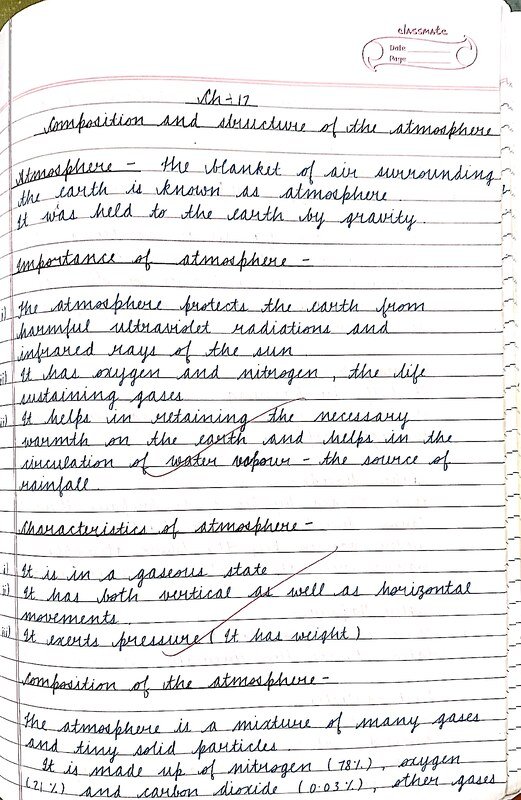 classmate
Date
Page
Ch - 17
Composition and structure of the atmosphere
Atmosphere - The blanket of air surrounding
the earth is known as atmosphere
It was held to the earth by gravity.
Importance of atmosphere -
i) The atmosphere protects the earth from
harmful ultraviolet radiations and
infrared rays of the sun
ii) It has oxygen and nitrogen, the life
sustaining gases
iii) It helps in retaining the necessary
warmth on the earth and helps in the
circulation of water vapour - the source of
rainfall
Characteristics of atmosphere -
i) It is in a gaseous state
ii) It has both vertical as well as horizontal
movements.
iii) It exerts pressure (It has weight)
Composition of the atmosphere -
The atmosphere is a mixture of many gases
and tiny solid particles.
It is made up of nitrogen (78%), oxygen
(21%) and carbon dioxide (0.03%), other gases